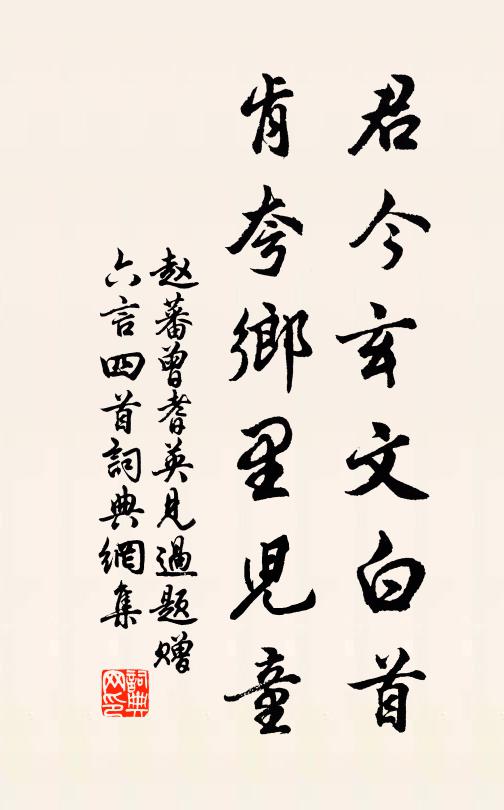 君今玄文白首
肯夸鄉里児童
赵蕃曾耆英見過題贈
六言四首詞典網集
詞典网印